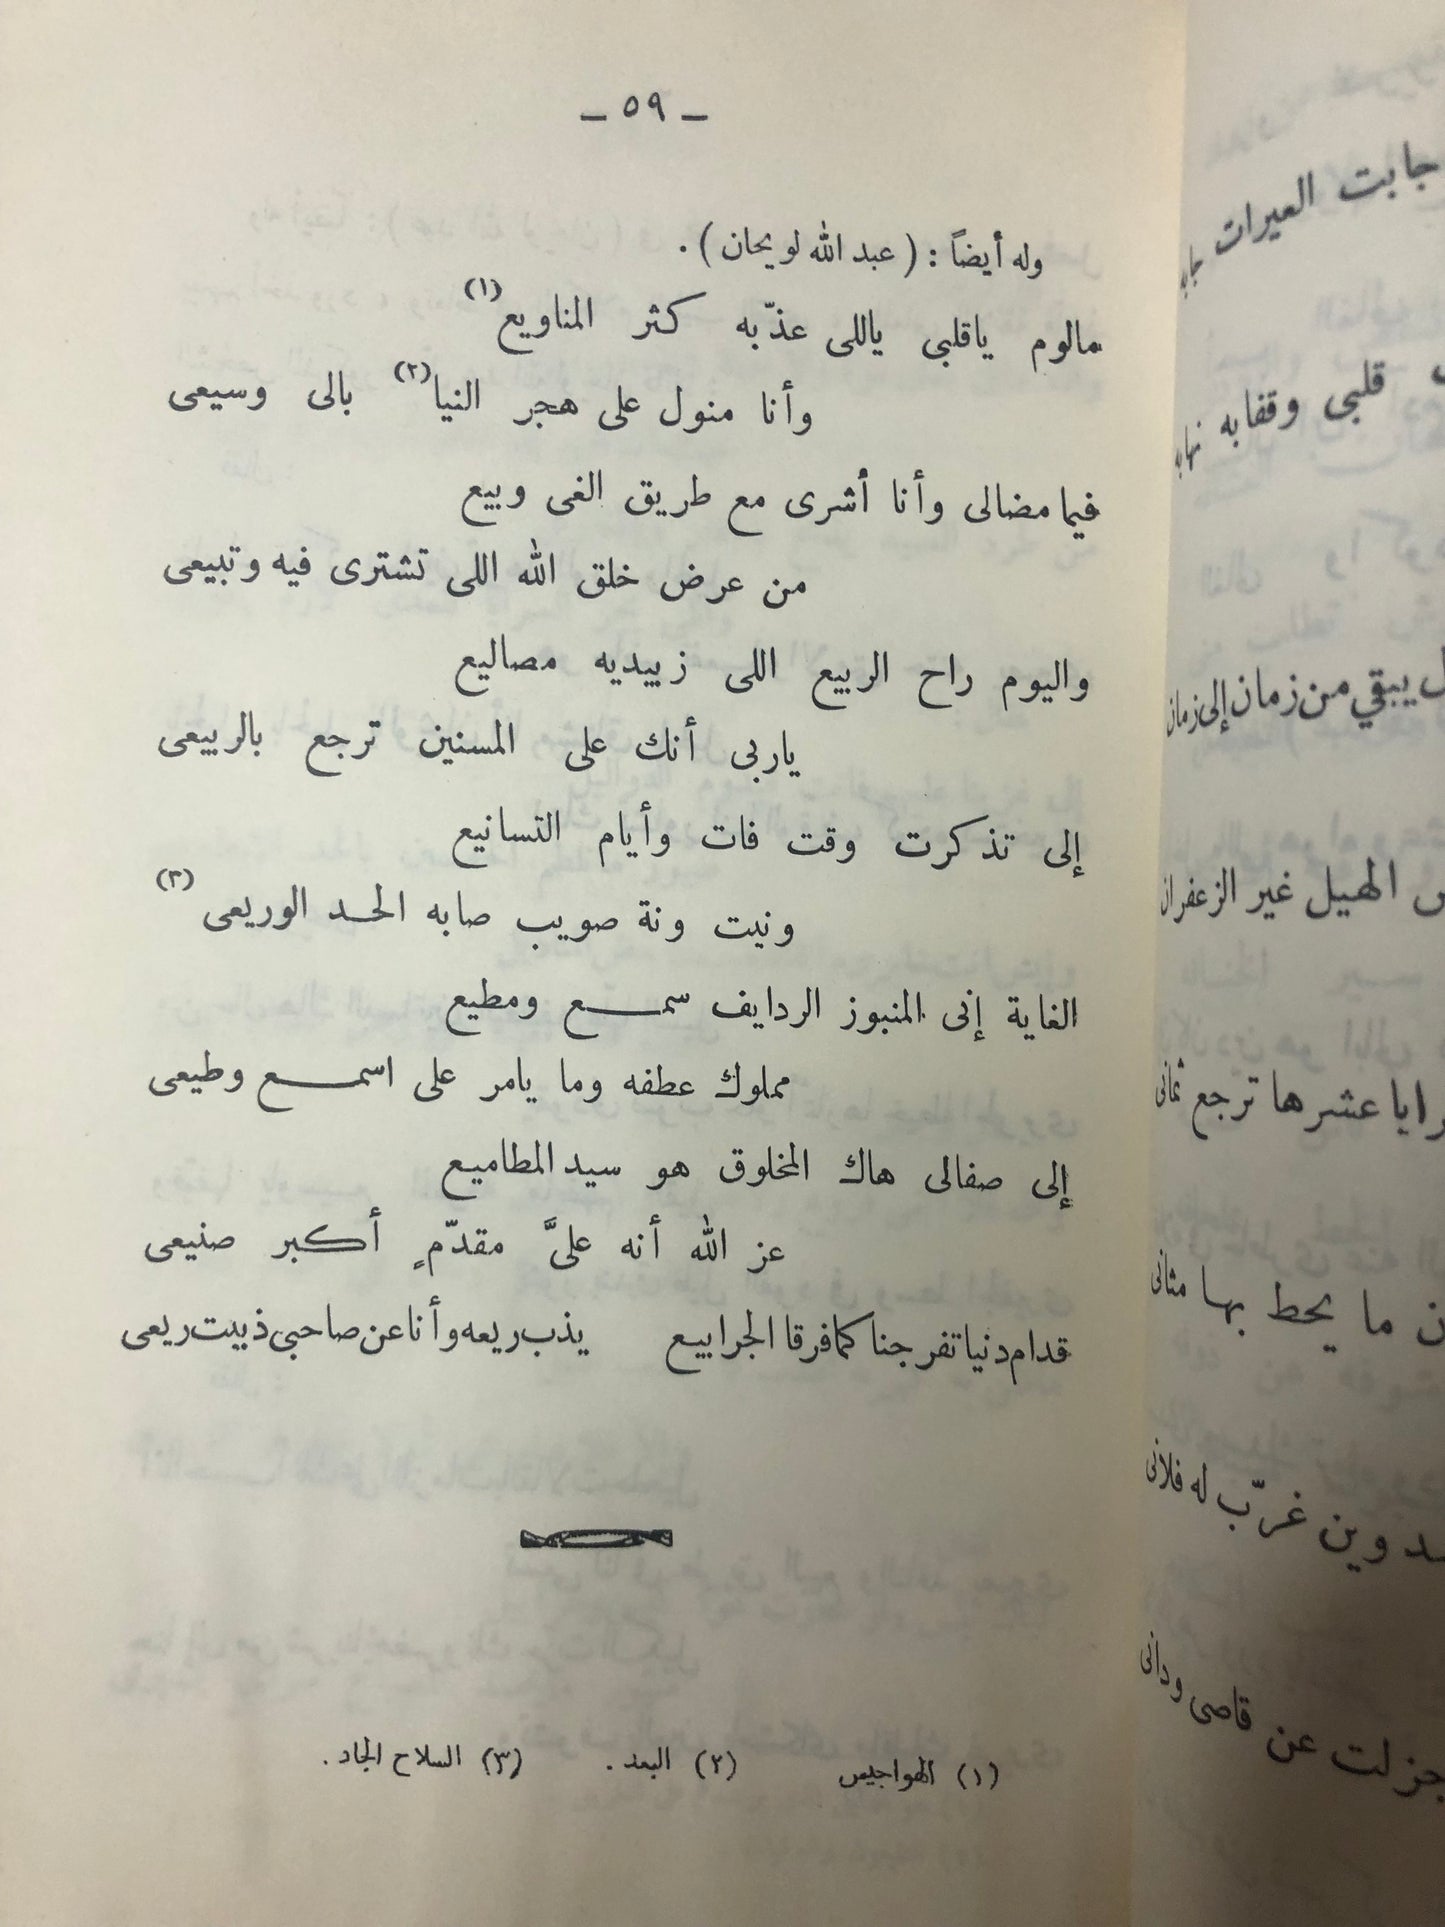 — ٥٩ —
وله أيضاً : ( عبد الله لويحان ) .
مالوم ياقلبى ياللى عذّبه كثر المناويع (١)
وأنا منول على هجر النيا (٢) بالى وسيعى
فيما مضالى وأنا أشرى مع طريق الغى وبيع
من عرض خلق الله اللى تشترى فيه وتبيعى
واليوم راح الربيع اللى زبيديه مصاليع
ياربى أنك على المسنين ترجع بالربيعى
إلى تذكرت وقت فات وأيام التسانيع
ونيت ونة صويب صابه الحد الوريعى (٣)
الغاية إنى المنبوز الردايف سمع ومطيع
مملوك عطفه وما يامر على اسمع وطيعى
إلى صفالى هاك المخلوق هو سيد المطاميع
عز الله أنه علىَّ مقدّمٍ أكبر صنيعى
قدام دنيا تفرجنا كما فرقا الجرابيع يذب ريعه وأنا عن صاحبى ذبيت ريعى
(١) الهواجيس (٢) البعد . (٣) السلاح الجاد .
جابت العيرات
قلبى وقفابه نهابه
يبقي من زمان إلى زمان
الهيل غير الزعفران
عشرها ترجع ثمانى
ما يحط بها مثانى
وين غرّب له فلانى
جزلت عن قاصى ودانى